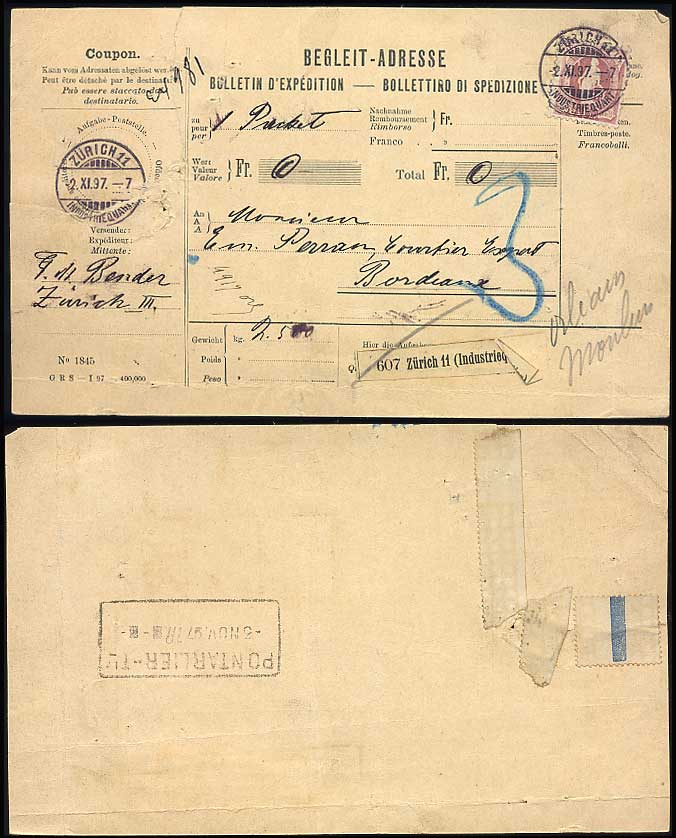 Coupon.
Kann vom Adressaten abgelöst wer
Peut être détaché par le destinat
Può essere staccato da
destinatario.
981
Aufgabe-Poststelle.
ZÜRICH 11
2.XI.97. – 7
INDUSTRIEQUART
Versender:
Expéditeur:
Mittente:
Bender
Zürich III.
No 1845
G R S – I 97 – 400,000
BEGLEIT-ADRESSE
BULLETIN D'EXPÉDITION — BOLLETTINO DI SPEDIZIONE
ZÜRICH 11
2.XI.97. – 7
INDUSTRIEQUART
zu
pour
per
1 Packet
Nachnahme
Remboursement
Rimborso
Fr.
Franco
Timbres-poste.
Francobolli.
Wert
Valeur
Valore
Fr. 0
Total Fr. 0
An
A
A
Monsieur
Em. Perran, Courtier Expert
Bordeaux
3
Gewicht
Poids
Peso
kg. 2.500
Hier die Aufgabe
607 Zürich 11 (Industrieq
Moulin
PONTARLIER-T
-3 NOV. 97